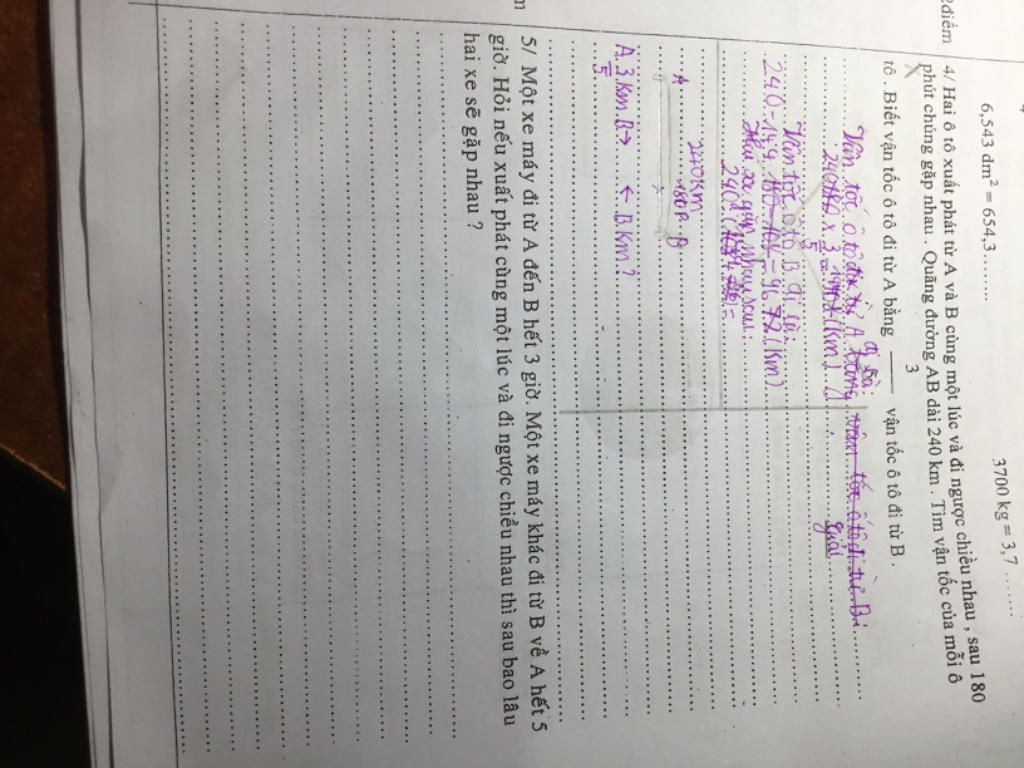 6,543 dm² = 654,3 ........
3700 kg = 3,7 ........
điểm
4/ Hai ô tô xuất phát từ A và B cùng một lúc và đi ngược chiều nhau , sau 180
phút chúng gặp nhau . Quãng đường AB dài 240 km . Tìm vận tốc của mỗi ô
3
tô . Biết vận tốc ô tô đi từ A bằng ——— vận tốc ô tô đi từ B .
Vận tốc ô tô A đi là:
240 x 3/5 = (km)
Vận tốc ô tô B đi là
240 - 144 = 72 (km)
Hai xe gặp nhau sau:
240 : =
240km
A 180P B
A. 3 km B→ ← B km?
5
5/ Một xe máy đi từ A đến B hết 3 giờ Một xe máy khác đi từ B về A hết 5
giờ. Hỏi nếu xuất phát cùng một lúc và đi ngược chiều nhau thì sau bao lâu
hai xe sẽ gặp nhau ?